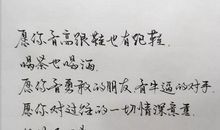 愿你有高跟鞋也有跑鞋
喝茶也喝酒
愿你有勇敢的朋友 有牛逼的对手
愿你对过往的一切情深意重